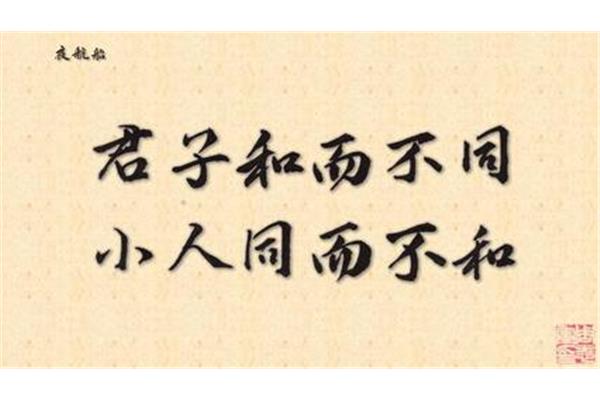 夜航船
君子和而不同
小人同而不和